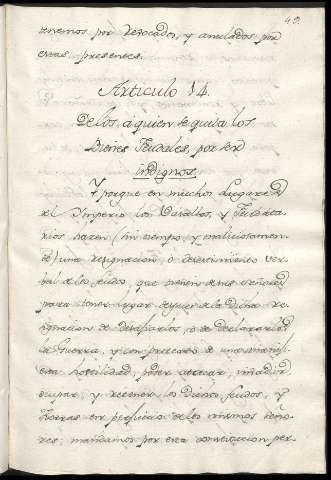 49.
tenemos por revocados, y anulados por
estas presentes.
Articulo 14.
De los, a quien se quita los
Bienes Feudales, por ser
indignos.
Y porque en muchos Lugares de
el Imperio los Vasallos, y Feudata-
rios hazen (sin tiempo, y maliciosamen-
te) una resignacion, o desistimiento ver-
bal de los feudos, que tienen de sus señores,
para tener lugar despues de la dicha re-
signacion de desafiarlos, o de declararles
la Guerra, y con pretexto de una manifi-
esta hostilidad, poder atacar, invadir,
ocupar, y retener los Dichos feudos, y
Tierras en perjuicio de los mismos seño-
res; mandamos por esta constitucion per-